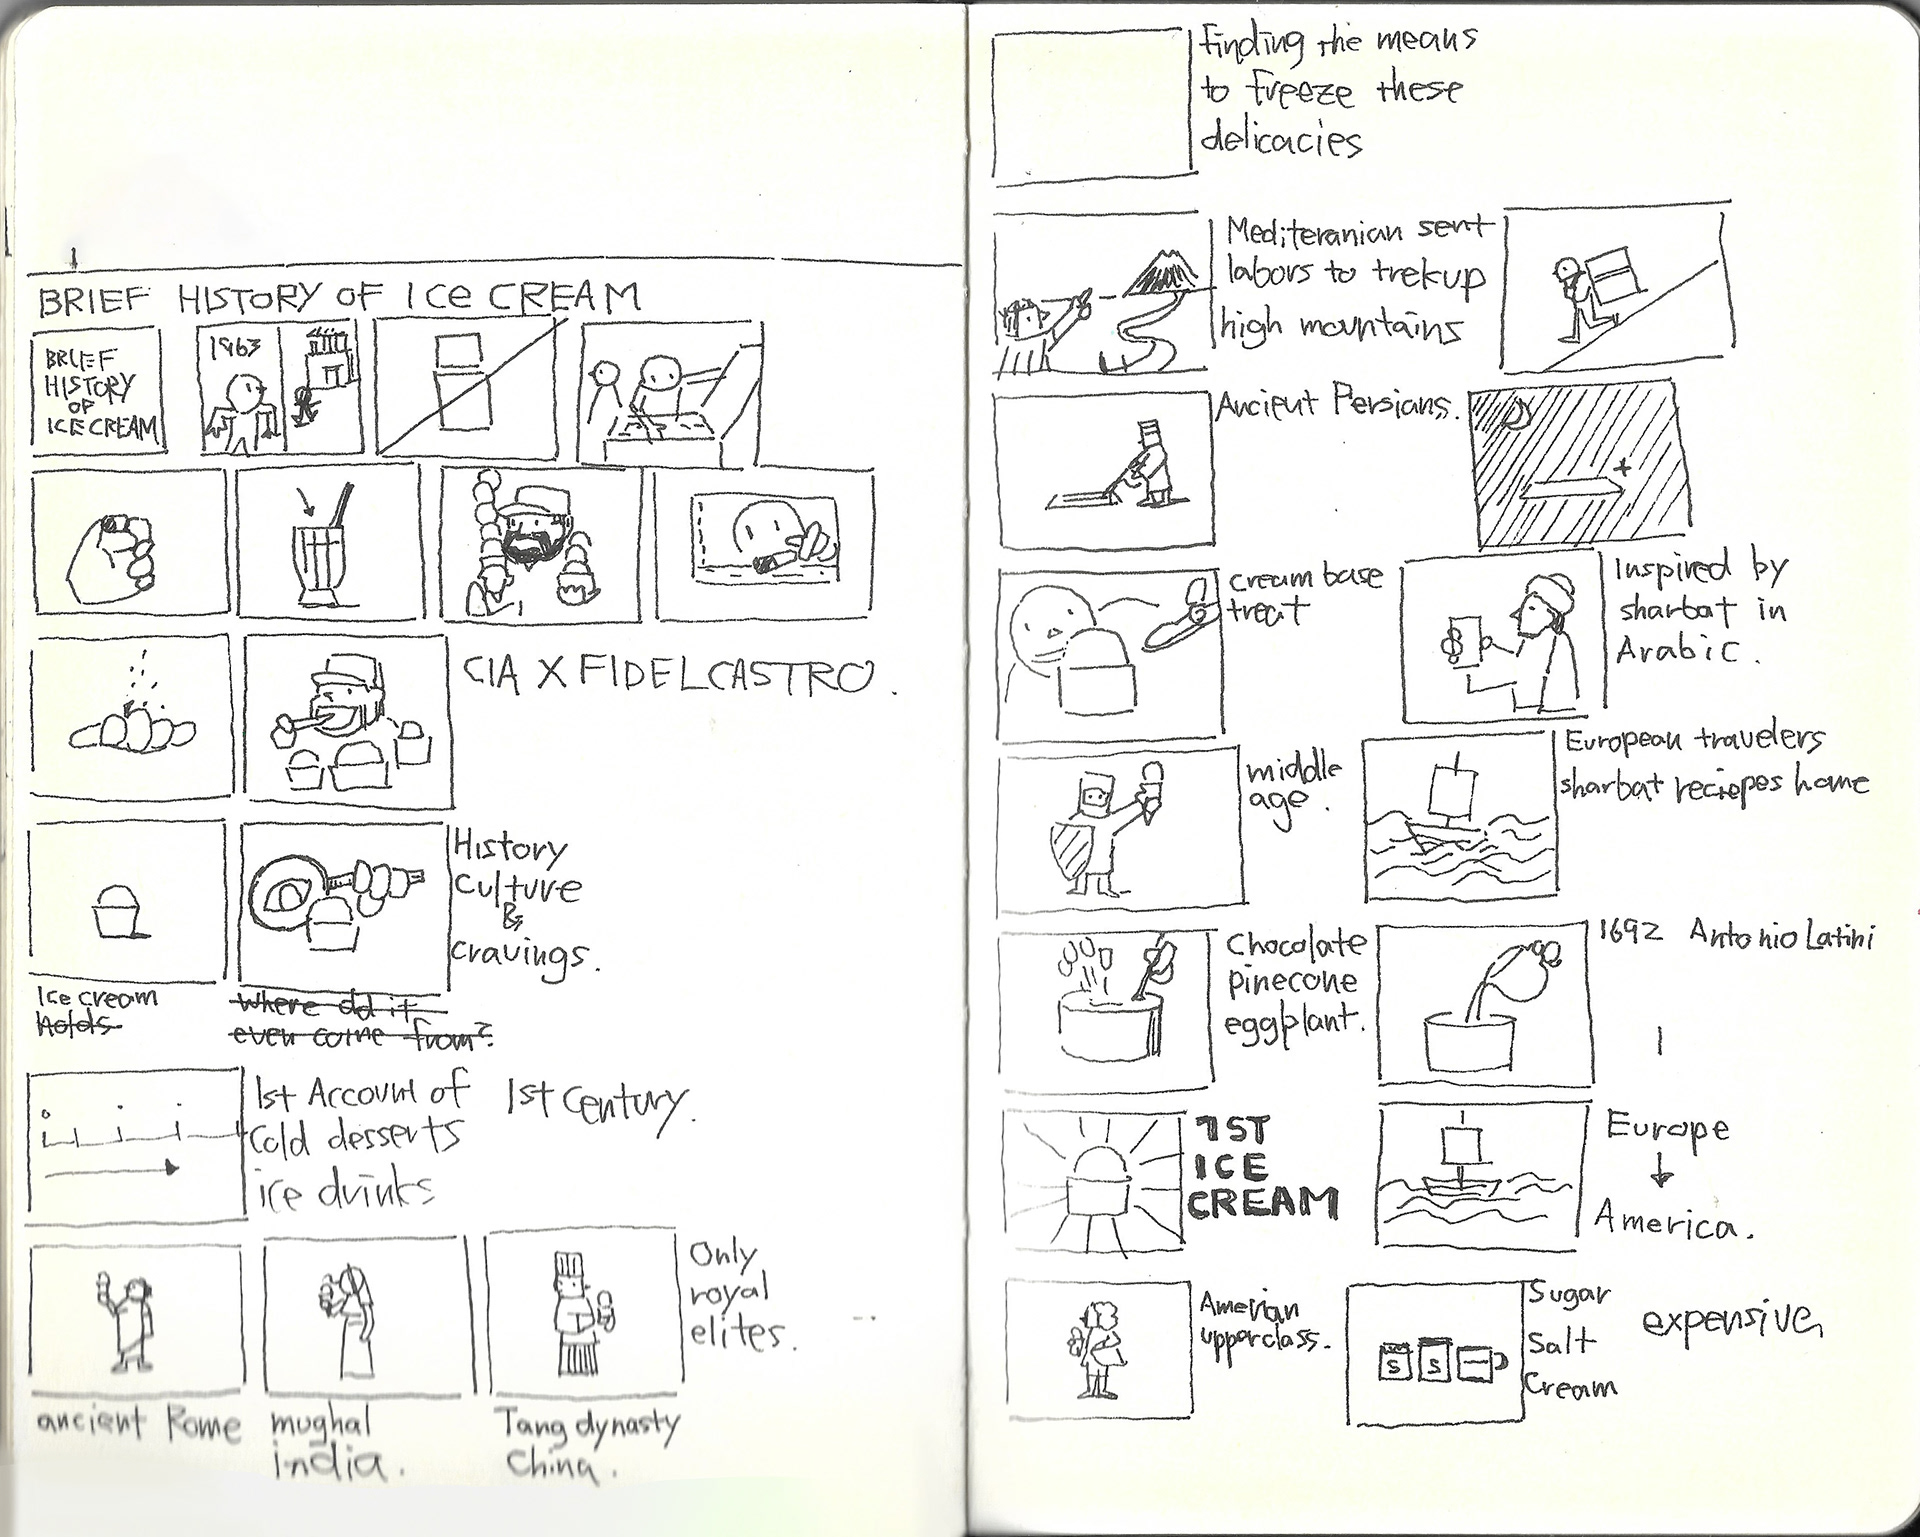 BRIEF HISTORY OF ICE CREAM
BRIEF
HISTORY
OF
ICE CREAM
1963
CIA X FIDEL CASTRO.
History
Culture
&
Cravings.
Ice cream
holds
where did it
even come from?
1st Account of
Cold desserts
ice drinks
1st Century.
Only
royal
elites.
ancient Rome
mughal
india.
Tang dynasty
China.
Finding the means
to freeze these
delicacies
Mediteranian sent
labors to trekup
high mountains
Ancient Persians.
cream base
treat
Inspired by
sharbat in
Arabic.
middle
age.
European travelers
sharbat reciepes home
Chocolate
pinecone
eggplant.
1692 Antonio Latini
1ST
ICE
CREAM
Europe
↓
America.
Amerian
upperclass.
S S
Sugar
Salt
Cream
expensive